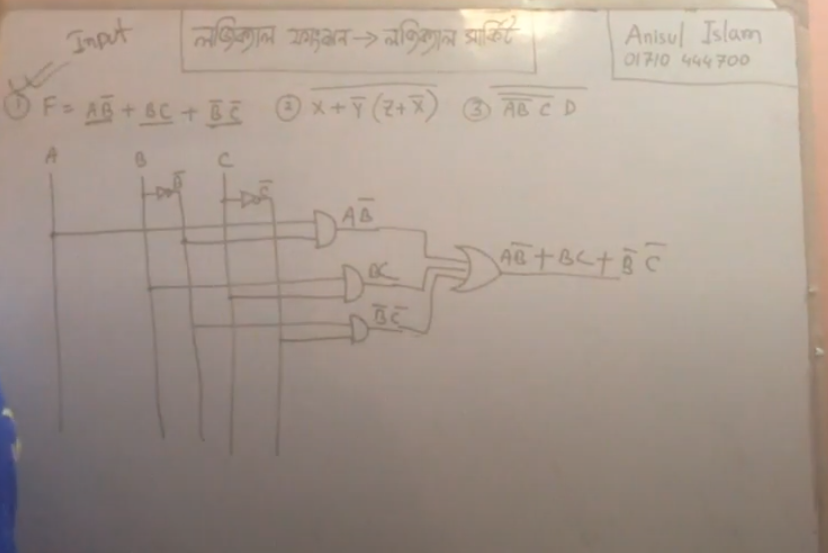 Input
লজিক্যাল ফাংশন → লজিক্যাল সার্কিট
Anisul Islam
01710 444700
① F = AB̅ + BC + B̅ C̅ ② X̅ ̅+̅ ̅Y̅ ̅(̅Z̅+̅X̅)̅ ③ A̅B̅ ̅C̅ ̅D̅
A B B̅ C C̅
AB̅
BC
B̅C̅
AB̅ + BC + B̅ C̅